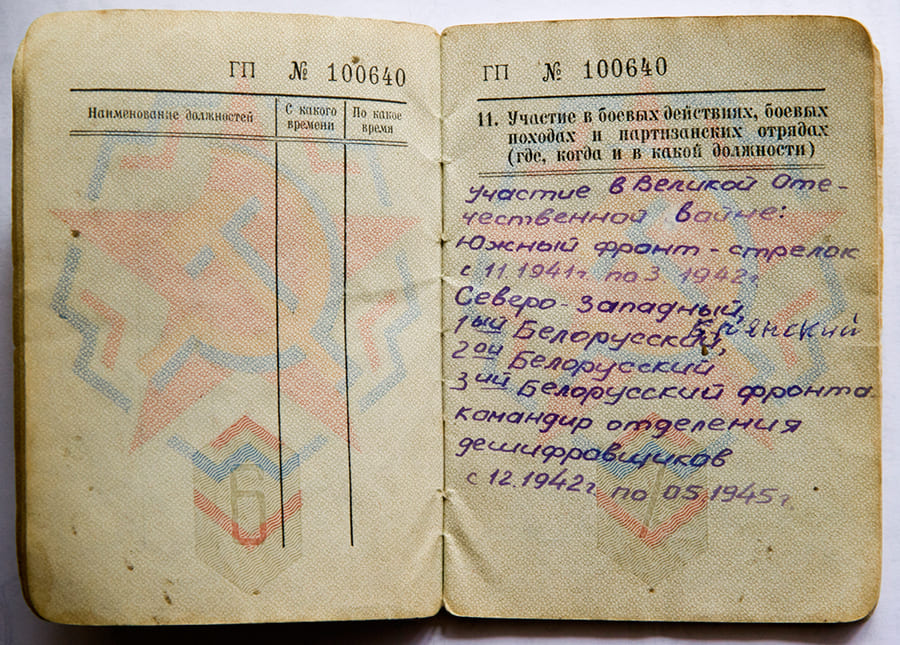 ГП № 100640
Наименование должностей
С какого времени
По какое время
6
ГП № 100640
11. Участие в боевых действиях, боевых
походах и партизанских отрядах
(где, когда и в какой должности)
Участие в Великой Оте-
чественной вайне:
Южный фронт - стрелок
с 11.1941г. по 3 1942г.
Северо-Западный,
Брянский
1ый Белорусский,
2ой Белорусский
3ий Белорусский фронта-
командир отделения
дешифровщиков
с 12.1942г. по 05.1945г.
7